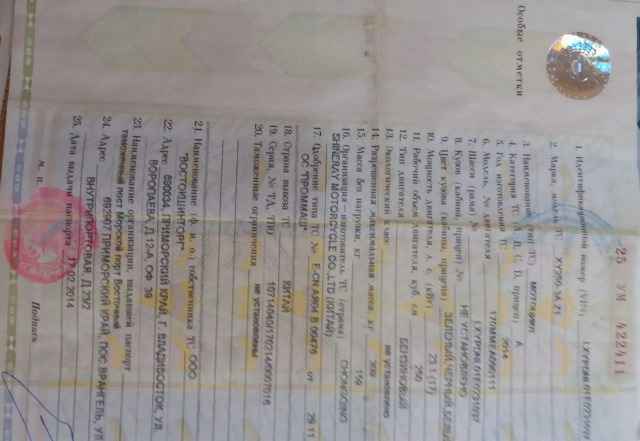 25 УМ 422411
1. Идентификационный номер (VIN)
2. Марка, модель ТС XY250GY-
3. Наименование (тип ТС) МОТОЦИКЛ
4. Категория ТС (А, В, С, D, прицеп) А
5. Год изготовления ТС 2014
6. Модель, № двигателя
7. Шасси (рама) №
8. Кузов (кабина, прицеп) № НЕ УСТАНОВЛЕНО
9. Цвет кузова (кабины, прицепа) ЗЕЛЕНЫЙ, ЧЕРНЫЙ, БЕЛЫЙ
10. Мощность двигателя, л. с. (кВт) 23.1 (17)
11. Рабочий объем двигателя, куб. см 250
12. Тип двигателя БЕНЗИНОВЫЙ
13. Экологический класс не установлено
14. Разрешенная максимальная масса, кг 309
15. Масса без нагрузки, кг 159
16. Организация – изготовитель ТС (страна) CHONGQING
SHINERAY MOTORCYCLE CO.,LTD (КИТАЙ)
17. Одобрение типа ТС № от 29.11
ОС "ПРОММАШ"
18. Страна вывоза ТС КИТАЙ
19. Серия, № ТД, ТПО
20. Таможенные ограничения не установлены
21. Наименование (ф. и. о.) собственника ТС ООО
"ВОСТОКШИНТОРГ"
22. Адрес 690034, ПРИМОРСКИЙ КРАЙ, Г. ВЛАДИВОСТОК, УЛ.
ВОРОПАЕВА, Д.12-А, ОФ. 39
23. Наименование организации, выдавшей паспорт
таможенный пост Морской порт Восточный
24. Адрес 692907 ПРИМОРСКИЙ КРАЙ, ПОС. ВРАНГЕЛЬ, УЛ.
ВНУТРИПОРТОВАЯ, Д.29/2
25. Дата выдачи паспорта 17.02.2014
М. П. Подпись
Особые отметки